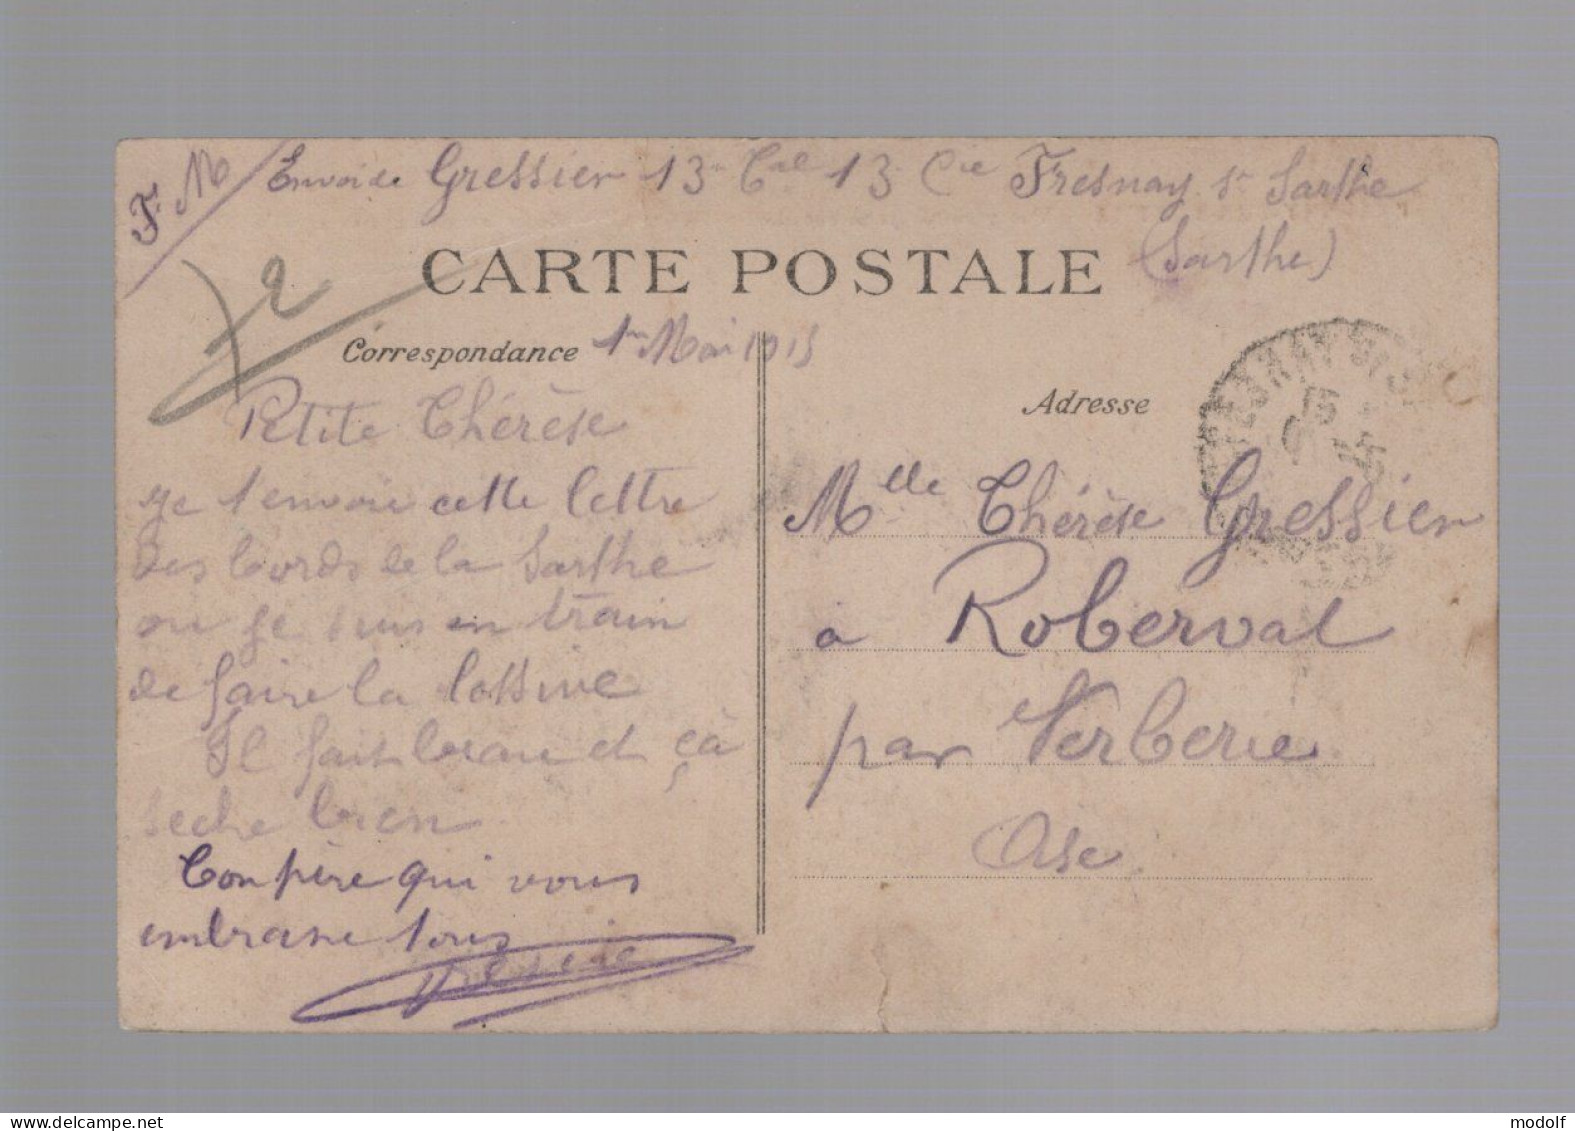 F. M
Envoi de Gressier 13e Cial 13 Cie Fresnay sr Sarthe
(Sarthe)
CARTE POSTALE
2
Correspondance 1er Mai 1915
Adresse
Petite Thérèse
je t'envoie cette lettre
des bords de la Sarthe
ou je suis en train
de faire la lessive
Il fait beau et çà
seche bien
Ton père qui vous
embrasse tous
Désiré
FRESNAY S
15
Melle Thérèse Gressier
a Roberval
par Verberie
Oise
www.delcampe.net
modolf